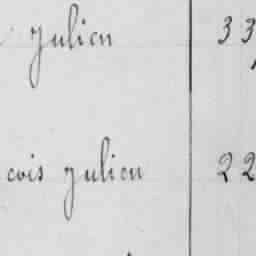 Julien 33
cois Julien 22